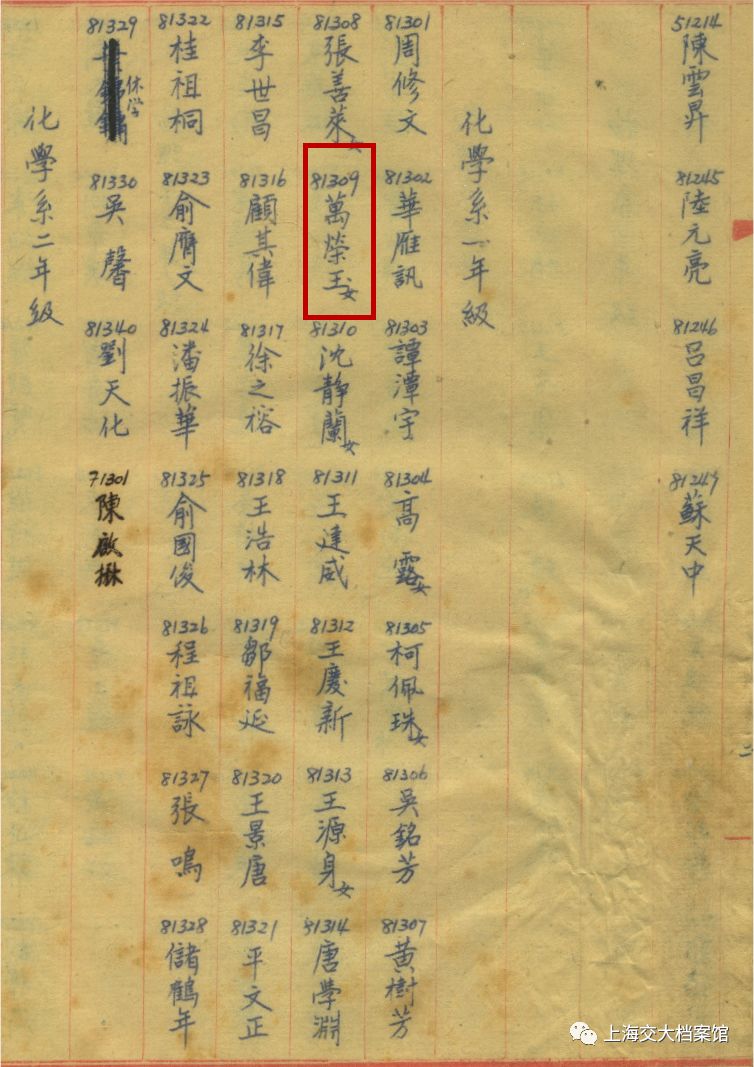 51214
陳雲昇
81245
陸元亮
81246
呂昌祥
81249
蘇天中
二
化學系一年級
81301
周修文
81302
華雁訊
81303
譚潭宇
81304
高露女
81305
柯佩珠女
81306
吳銘芳
81307
黃樹芳
81308
張善萊女
81309
萬榮玉女
81310
沈靜蘭女
81311
王建威
81312
王慶新
81313
王源身女
81314
唐學淵
81315
李世昌
81316
顧其偉
81317
徐之裕
81318
王浩林
81319
鄒福延
81320
王景唐
81321
平文正
81322
桂祖桐
81323
俞膺文
81324
潘振華
81325
俞國俊
81326
程祖詠
81327
張鳴
81328
儲鶴年
81329
休学
81330
吳馨
81340
劉天化
71301
陳啟楙
化學系二年級
上海交大档案馆